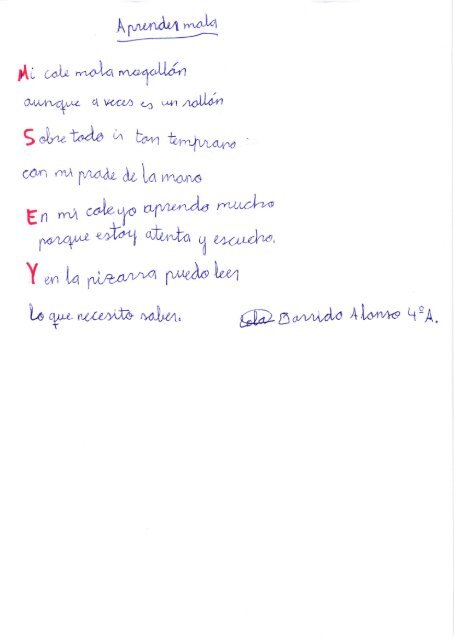 Aprender mola
Mi cole mola mogollón
aunque a veces es un rollón
Sobre todo ir tan temprano
con mi prade de la mano
En mi cole yo aprendo mucho
porque estoy atenta y escucho.
Y en la pizarra puedo leer
lo que necesito saber.
Garrido Alonso 4ºA.